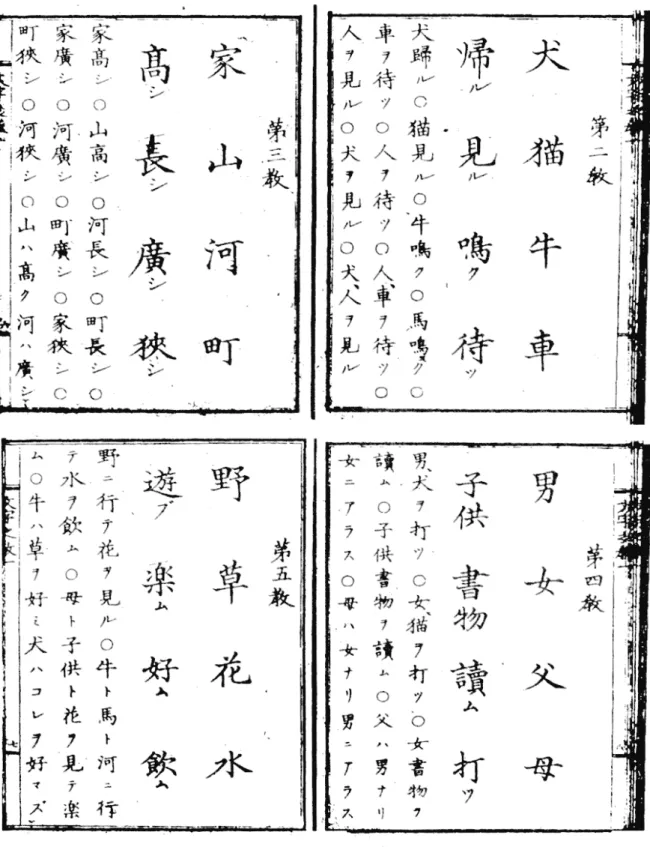 第二教
犬 猫 牛 車
帰ル 見ル 鳴ク 待ツ
犬歸ル○猫見ル○牛鳴ク○馬鳴ク○
車ヲ待ツ○人ヲ待ツ○人、車ヲ待ツ○
人ヲ見ル○犬ヲ見ル○犬、人ヲ見ル
第三教
家 山 河 町
高シ 長シ 廣シ 狹シ
家高シ○山高シ○河長シ○町長シ○
家廣シ○河廣シ○町廣シ○家狹シ○
町狹シ○河狹シ○山ハ高ク河ハ廣シ
第四教
男 女 父 母
子供 書物 讀ム 打ツ
男、犬ヲ打ツ○女、猫ヲ打ツ○女書物ヲ
讀ム○子供書物ヲ讀ム○父ハ男ナリ
女ニアラス○母ハ女ナリ男ニアラス
第五教
野 草 花 水
遊ブ 楽ム 好ム 飲ム
野ニ行テ花ヲ見ル○牛ト馬ト河ニ行
テ水ヲ飲ム○母ト子供ト花ヲ見テ楽
ム○牛ハ草ヲ好ミ犬ハコレヲ好マズ